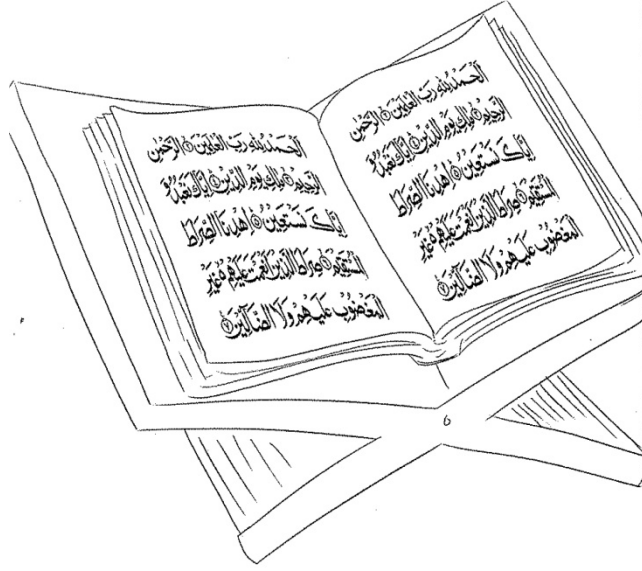 الحمد لله رب العلمين ۝ الرحمن
الرحيم ۝ ملك يوم الدين ۝ إياك نعبد و
إياك نستعين ۝ اهدنا الصراط
المستقيم ۝ صراط الذين أنعمت عليهم ۝ غير
المغضوب عليهم ولا الضالين ۝
الحمد لله رب العلمين ۝ الرحمن
الرحيم ۝ ملك يوم الدين ۝ إياك نعبد و
إياك نستعين ۝ اهدنا الصراط
المستقيم ۝ صراط الذين أنعمت عليهم ۝ غير
المغضوب عليهم ولا الضالين ۝
6